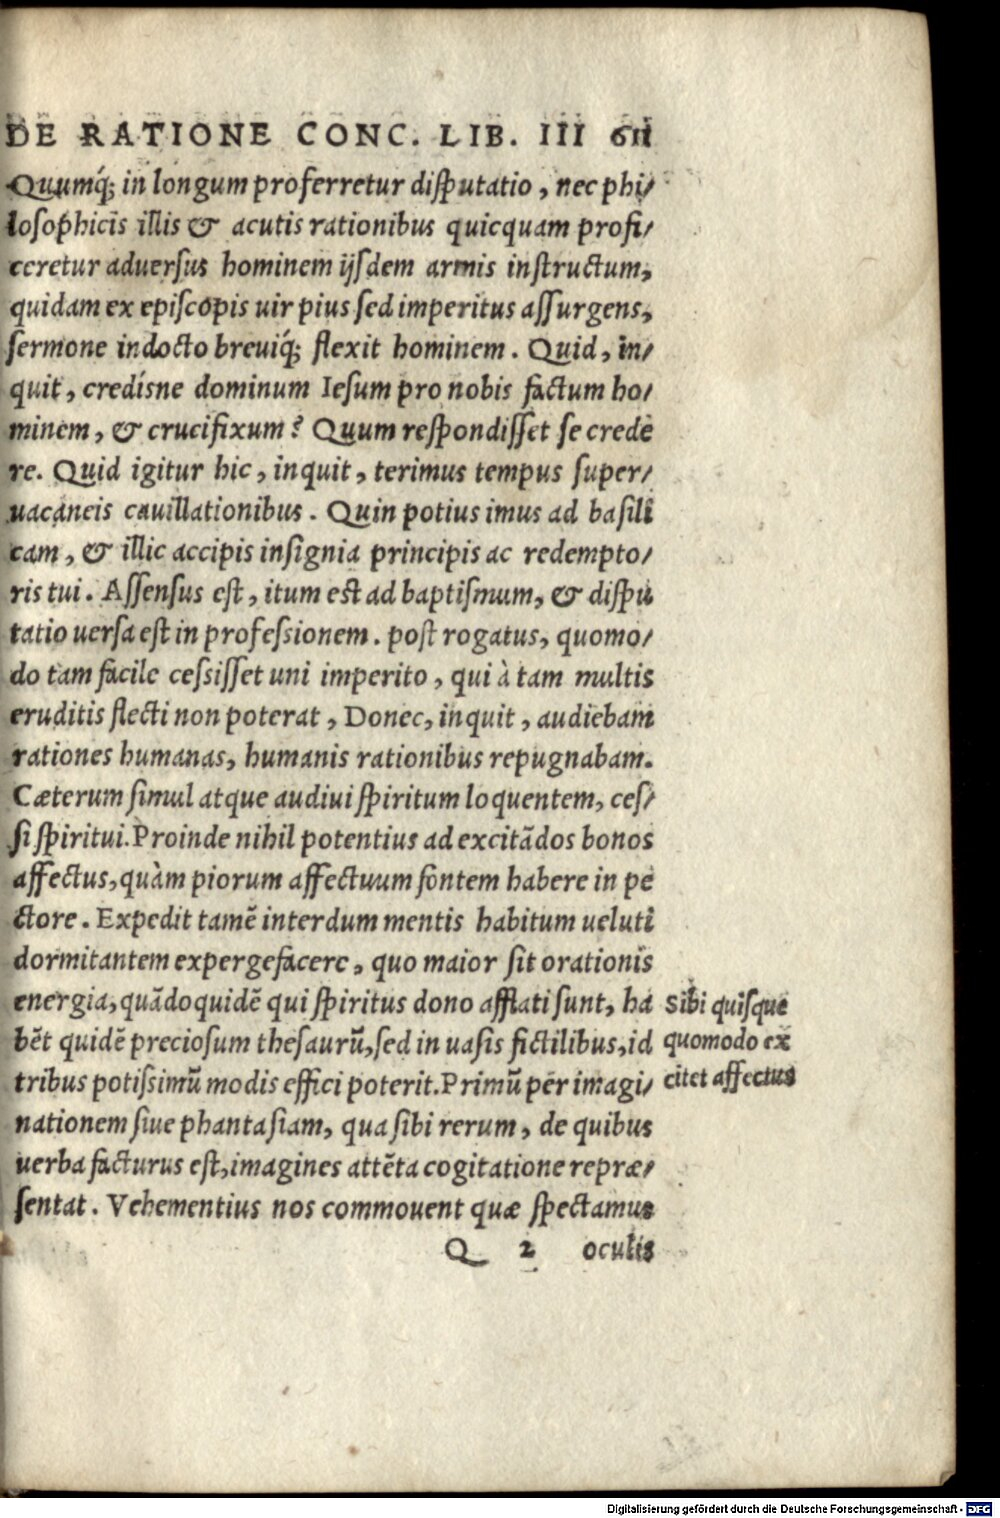 DE RATIONE CONC. LIB. III 611
Quumq́; in longum proferretur disputatio, nec phi/
losophicis illis & acutis rationibus quicquam profi/
ceretur aduersus hominem ijsdem armis instructum,
quidam ex episcopis uir pius sed imperitus assurgens,
sermone indocto breuiq́; flexit hominem. Quid, in/
quit, credísne dominum Iesum pro nobis factum ho/
minem, & crucifixum? Quum respondisset se crede
re. Quid igitur hic, inquit, terimus tempus super/
uacaneis cauillationibus. Quin potius imus ad basili
cam, & illic accipis insignia principis ac redempto/
ris tui. Assensus est, itum est ad baptismum, & dispu
tatio uersa est in professionem. post rogatus, quomo/
do tam facile cessisset uni imperito, qui à tam multis
eruditis flecti non poterat, Donec, inquit, audiebam
rationes humanas, humanis rationibus repugnabam.
Cæterum simul atque audiui spiritum loquentem, ces/
si spiritui. Proinde nihil potentius ad excitãdos bonos
affectus, quàm piorum affectuum fontem habere in pe
ctore. Expedit tamẽ interdum mentis habitum ueluti
dormitantem expergefacere, quo maior sit orationis
energia, quãdoquidẽ qui spiritus dono afflati sunt, ha
bẽt quidẽ preciosum thesaurũ, sed in uasis fictilibus, id
tribus potissimũ modis effici poterit. Primũ per imagi/
nationem siue phantasiam, qua sibi rerum, de quibus
uerba facturus est, imagines attẽta cogitatione repræ/
sentat. Vehementius nos commouent quæ spectamus
Q 2 oculis
Sibi quisque
quomodo ex
citet affectus
Digitalisierung gefördert durch die Deutsche Forschungsgemeinschaft - DFG